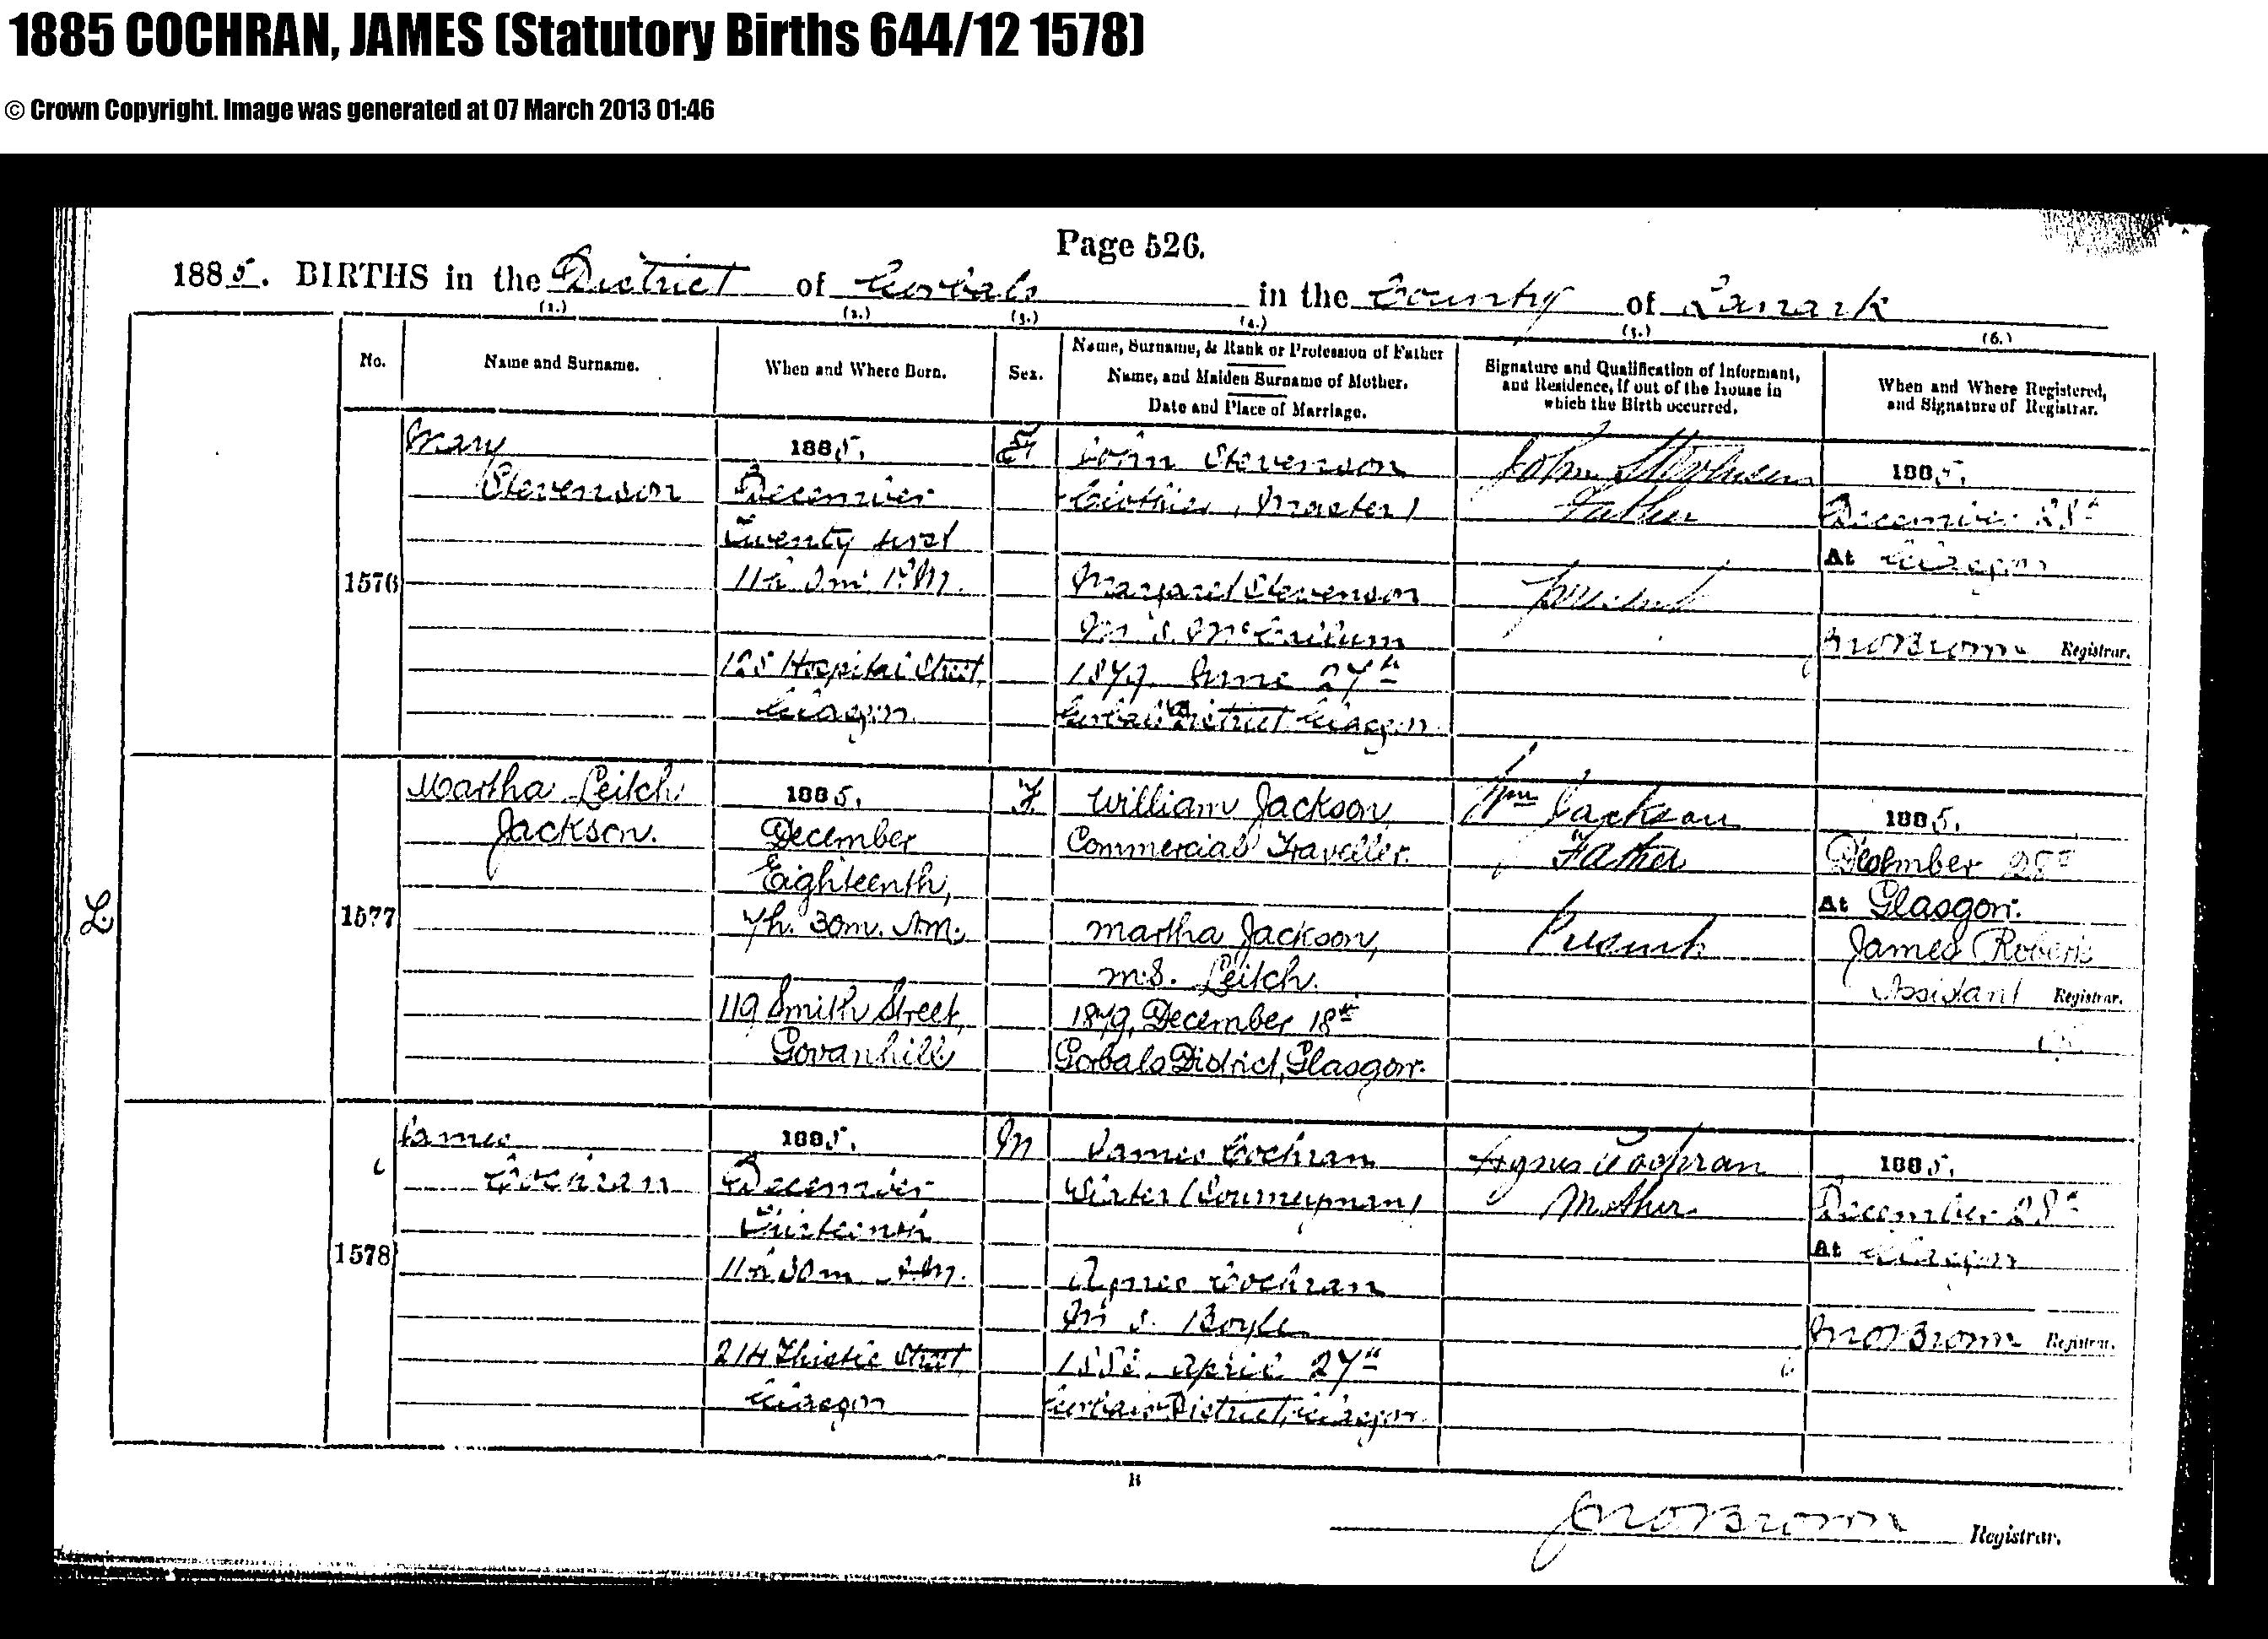 1885 COCHRAN, JAMES (Statutory Births 644/12 1578)
© Crown Copyright. Image was generated at 07 March 2013 01:46
Page 526.
1885. BIRTHS in the District of Gorbals in the County of Lanark
(1.) (2.) (3.) (4.) (5.) (6.)
No.
Name and Surname.
When and Where Born.
Sex.
Name, Surname, & Rank or Profession of Father
Name, and Maiden Surname of Mother.
Date and Place of Marriage.
Signature and Qualification of Informant,
and Residence, if out of the house in
which the Birth occurred.
When and Where Registered,
and Signature of Registrar.
1576
Mary
Stevenson
1885.
December
Twenty first
11h. 0m. P.M.
125 Hospital Street,
Glasgow
F.
John Stevenson
Clothier (Master)
Margaret Stevenson
M.S. McCallum
1879, June 27th
Gorbals District Glasgow
John
Father
Present
1885.
December 28th
At Glasgow
Jno Brown Registrar.
L.
1577
Martha Leitch
Jackson.
1885.
December
Eighteenth,
7h. 30m. A.M.
119 Smith Street,
Govanhill
F.
William Jackson,
Commercial Traveller.
Martha Jackson,
m.s. Leitch.
1879, December 18th
Gorbals District, Glasgow.
Wm Jackson
Father
Present
1885.
December 28th
At Glasgow.
James Robert
Assistant Registrar.
1578
James
Cochran
1885.
December
Thirteenth
11h 30m A.M.
214 Thistle Street,
Glasgow
M
James Cochran
(Journeyman)
Agnes Cochran
M.S. Boyle
April 27th
Gorbals District, Glasgow
Agnes Cochran
Mother
1885.
December 28th
At Glasgow
Jno Brown Registrar.
B
Jno Brown Registrar.